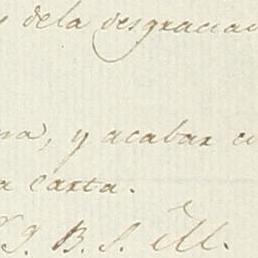 dela desgracia
, y acabar c
a carta.
J. B. S. M.